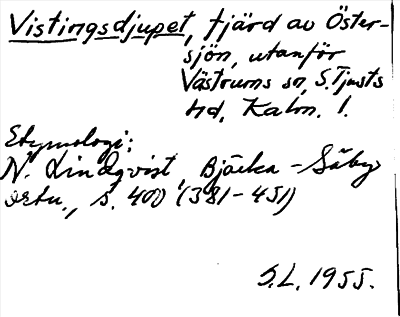 Vistingsdjupet, fjärd av Öster-
sjön, utanför
Västrums sn, S. Tjusts
hd, Kalm. l.
Etymologi:
N. Lindqvist, Bjärka-Säby
ortn., s. 400 (381-451)
S.L. 1955.